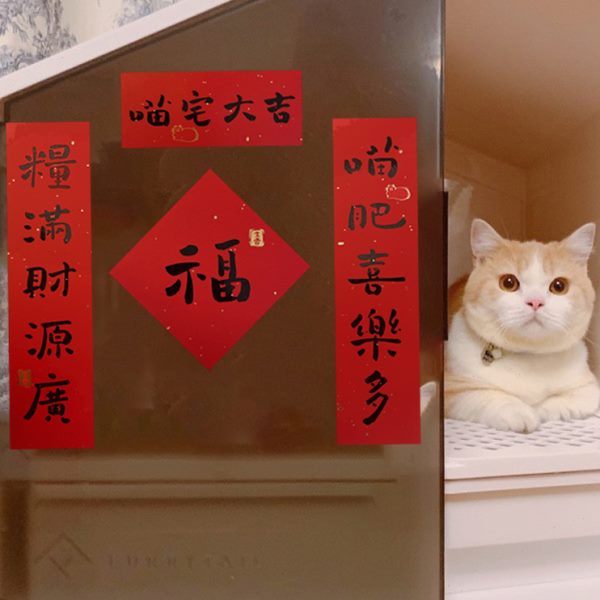 喵宅大吉
喵肥喜樂多
糧滿財源廣
福